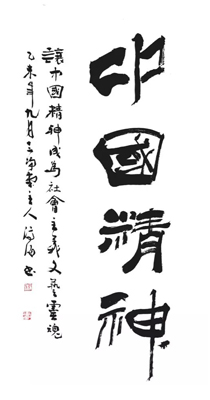 中國精神
讓中國精神成為社會主義文藝靈魂
乙未年九月三淨齋主人